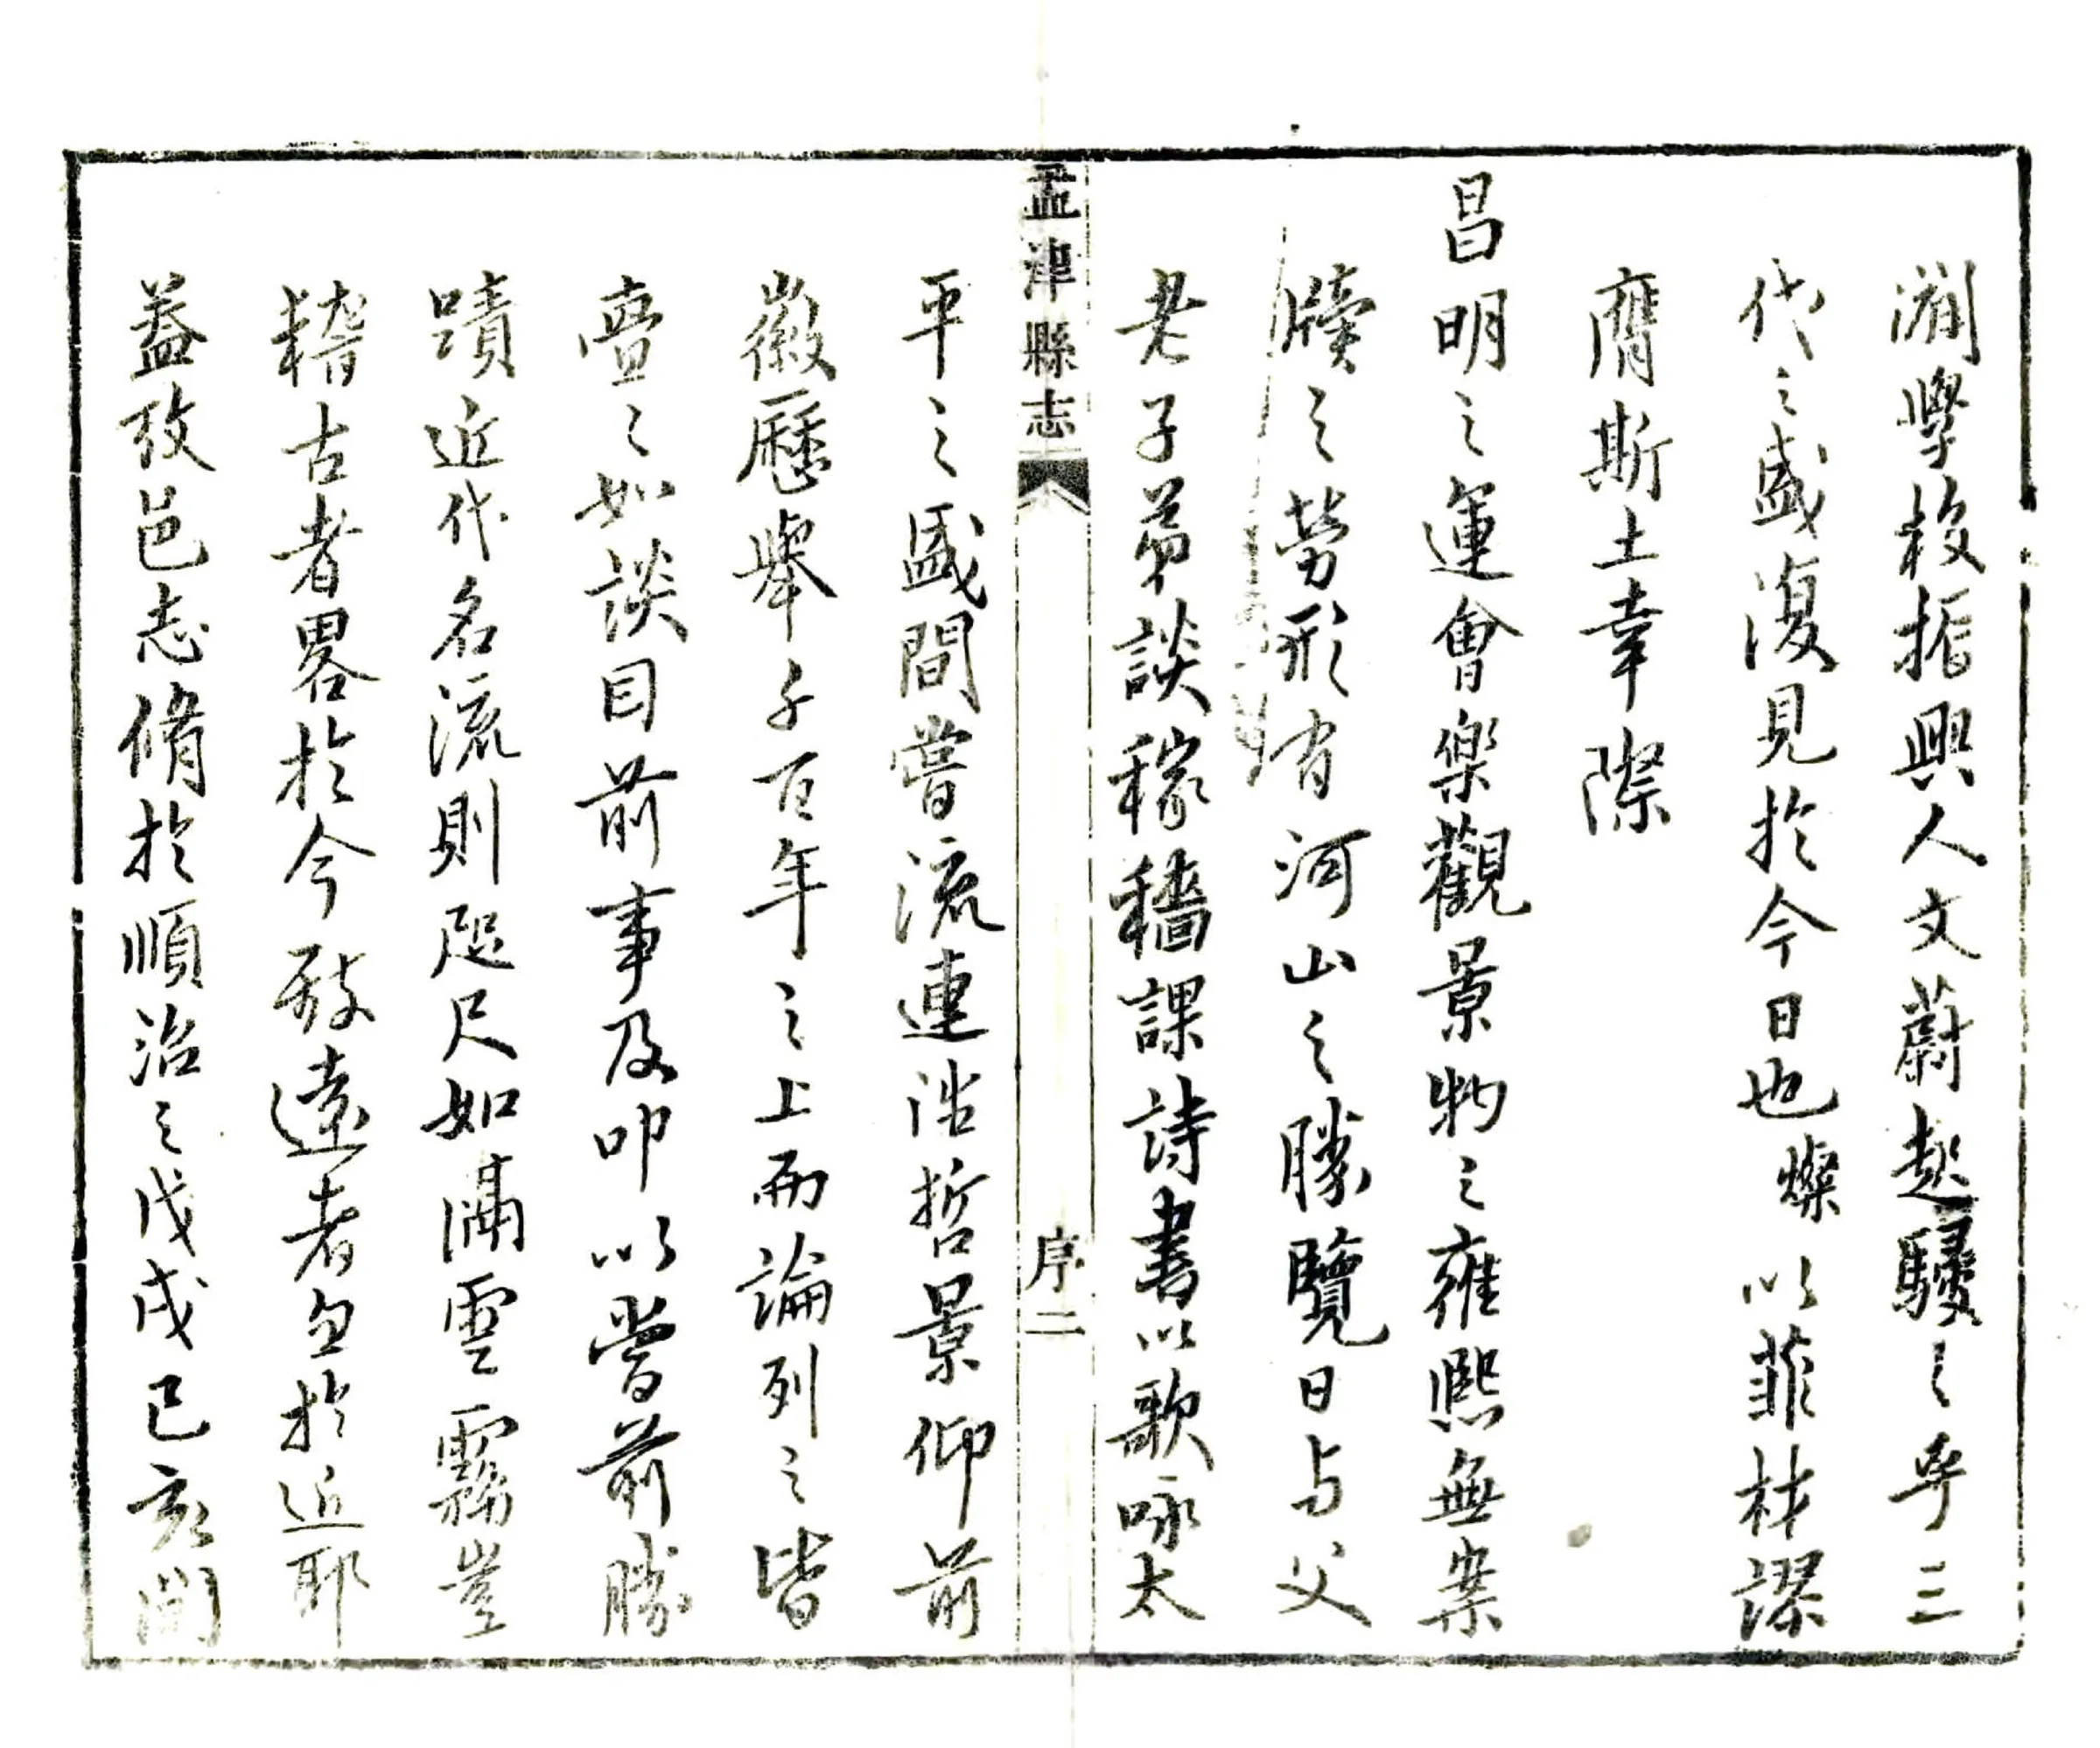 澗學校振興人文蔚起駸〻乎三
代之盛復見於今日也燦以菲材謬
膺斯土幸際
昌明之運會樂觀景物之雍熙無案
牘之勞形有河山之勝覽日与父
老子弟談稼穡課詩書以歌咏太
孟津縣志
序二
平之盛間嘗流連浩哲景仰前
徽歷舉千百年之上而論列之皆
亹〻如談目前事及叩以當前勝
蹟近代名流則咫尺如隔雲霧豈
稽古者畧於今致遠者忽於近耶
益攷邑志脩於順治之戊戌已亥間